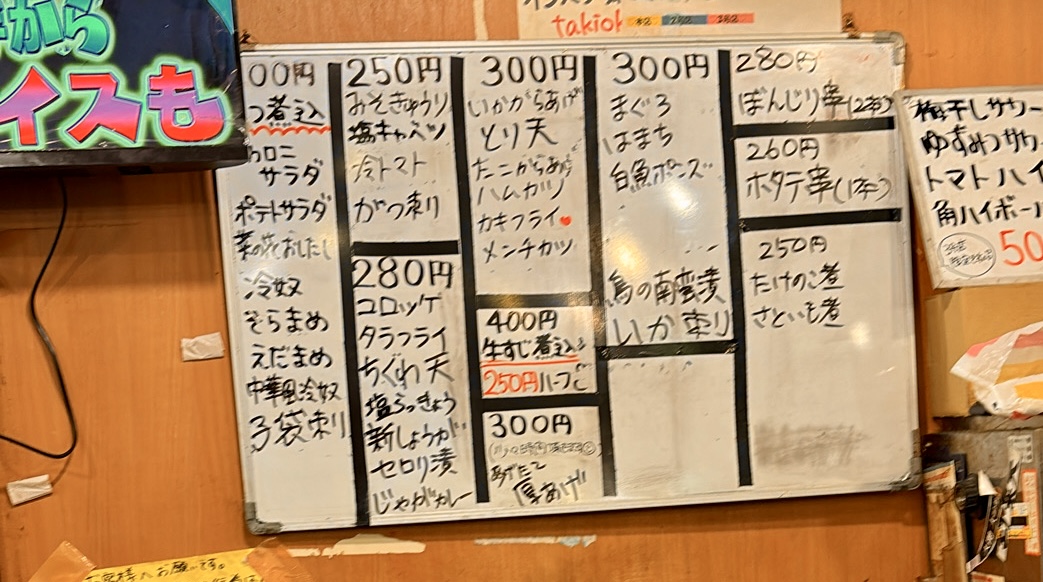 から
イスも
takio
00円
つ煮込
ロニ
サラダ
ポテトサラダ
菜の花おしたし
冷奴
そらまめ
えだまめ
中華風冷奴
子袋刺り
250円
おそきゅうり
塩キャベツ
冷トマト
がつ刺り
280円
コロッケ
タラフライ
ちくわ天
塩らっきょう
新しょうが
セロリ漬
じゃがカレー
300円
いかからあげ
とり天
たこからあげ
ハムカツ
カキフライ♥
メンチカツ
400円
牛すじ煮込み
250円ハーフ
300円
あげたて
厚あげ
300円
まぐろ
はまち
白魚ポンズ
鳥の南蛮漬
いか刺り
280円
ぼんじり串(2本)
260円
ホタテ串(1本)
250円
たけのこ煮
さといも煮
梅干しサワー
ゆずみつサワ
トマトハイ
角ハイボール
50
お客様へお願いです。